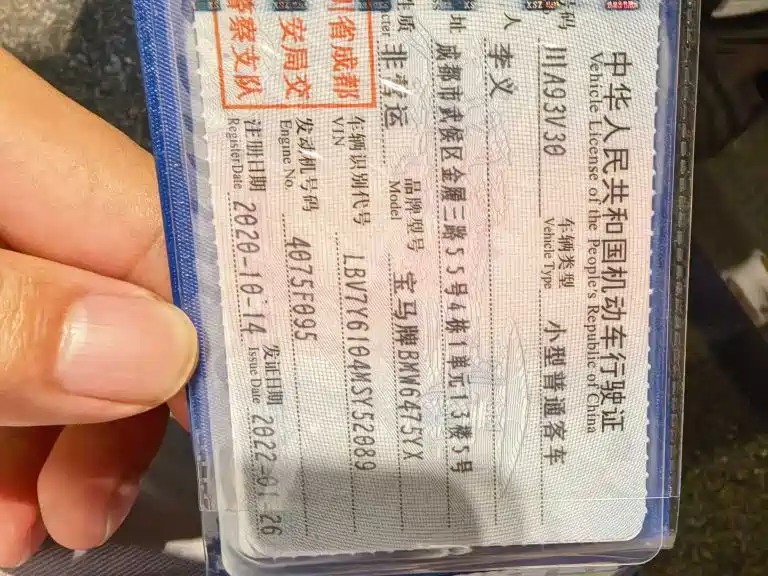 中华人民共和国机动车行驶证
Vehicle License of the People's Republic of China
号码 川A93V30 车辆类型 小型普通客车
Vehicle Type
人 李义
址 成都市武侯区金履三路55号4栋1单元13楼5号
性质 非营运 品牌型号 宝马牌BMW6475YX
cter Model
川省成都
安局交
警察支队
车辆识别代号 LBV7Y6104MSY52089
VIN
发动机号码 4075F095
Engine No.
注册日期 2020-10-14 发证日期 2022-01-26
Register Date Issue Date